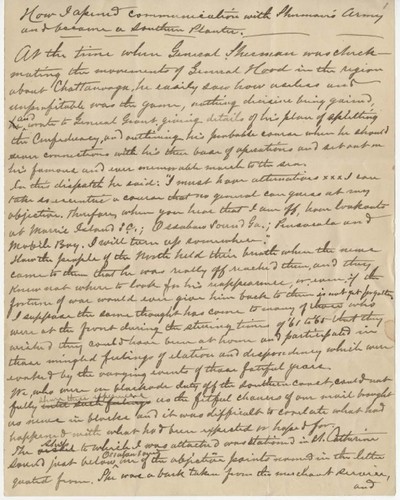 1
How I opened communication with Sherman's Army
and became a Southern Planter.
At the time when General Sherman was check-
mating the movements of General Hood in the region
about Chattanooga, he easily saw how useless and
unprofitable was the game, nothing decisive being gained,
and wrote to General Grant, giving detail of his plan of splitting
the Confederacy, and outlining his probable course when he should
sever connections with his then base of operations and set out on
his famous and ever memorable march to the sea.
In the dispatch he said: "I must have alternatives x x x I can
take so eccentric a course that no general can guess at my
objective. Therefore, when you hear that I am off, have lookouts
at Morris Island S.C.; Ossabaw Sound Ga.; Pensacola and
Mobile Bay. I will turn up somewhere."
How the people of the North held their breath when the news
came to them that he was really off reached them, and they
knew not where to look for his reappearance, or even if the
fortune of war would ever give him back to them is not yet forgotten
I suppose the same thought has come to many of those who
were at the front during the stirring times of '61 to '65 that they
wished they could have been at home and participated in
those mingled feelings of elation and despondency which were
evoked by the varying events of those fateful years.
We, who were on blockade duty off the southern coast, could not
fully as the fitful chances of our mail brought
us news in blocks and it was difficult to correlate what had
happened with what had been expected or hoped for.
The ship to which I was attached was stationed in St. Catherine
Sound just below Ossabaw Sound one of the objective points named in the letter
quoted from. She was a bark taken from the merchant service,
and